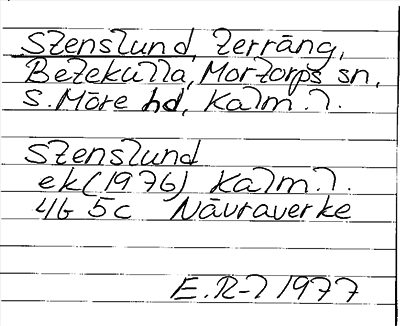 Stenslund, terräng,
Betekulla, Mortorps sn,
S. Möre hd, Kalm. l.
Stenslund
ek (1976) Kalm. l.
4G 5c Nävraverke
E.R-l 1977